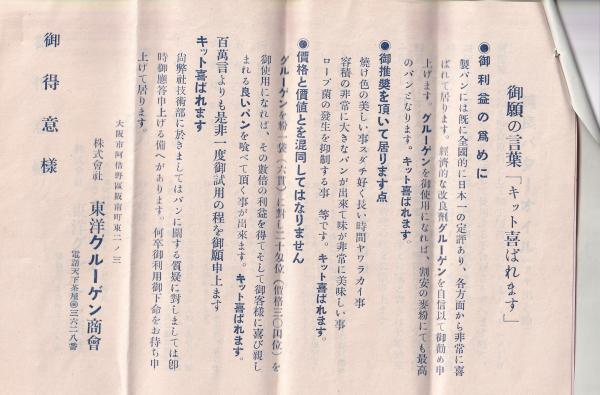 御願の言葉「キット喜ばれます」
●御利益の爲めに
製パンには既に全國的に日本一の定評あり、各方面から非常に喜
ばれて居ります。經濟的な改良劑グルーゲンを自信以て御勸め申
上げます。グルーゲンを御使用になれば、割安の麥粉にても最高
のパンとなります。キット喜ばれます。
●御推奬を頂いて居ります点
燒け色の美しい事スダチ好く長い時間ヤワラカイ事
容積の非常に大きなパンが出來て味が非常に美味しい事
ロープ菌の發生を抑制する事 等です。キット喜ばれます。
●價格と價値とを混同してはなりません
グルーゲンを粉一袋(六貫)に對し二十匁位(價格三〇円位)を
御使用になれば、その數倍の利益を得てそして御客樣に喜び親し
まれる良いパンを喰べて頂く事が出來ます。キット喜ばれます。
百萬言よりも是非一度御試用の程を御願申上ます
キット喜ばれます
尙弊社技術部に於きましてはパンに關する質疑に對しましては卽
時御應答申上げる備へがあります。何卒御利用御下命をお待ち申
上げて居ります。
大阪市阿倍野區阪南町東二ノ三
株式會社 東洋グルーゲン商會
電話天下茶屋㊿三六二八番
御得意樣